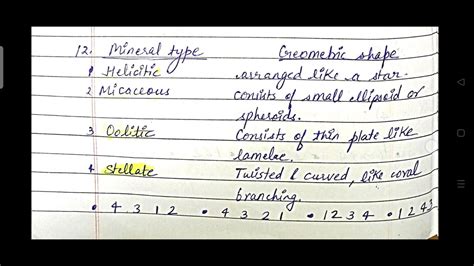 12. Mineral type Geometric shape
1 Helicitic arranged like a star.
2 Micaceous consists of small ellipsoid or
spheroids.
3 Oolitic Consists of thin plate like
lamelae.
4 Stellate Twisted & curved, like coral
branching.
• 4 3 1 2 • 4 3 2 1 • 1 2 3 4 • 1 2 4 3